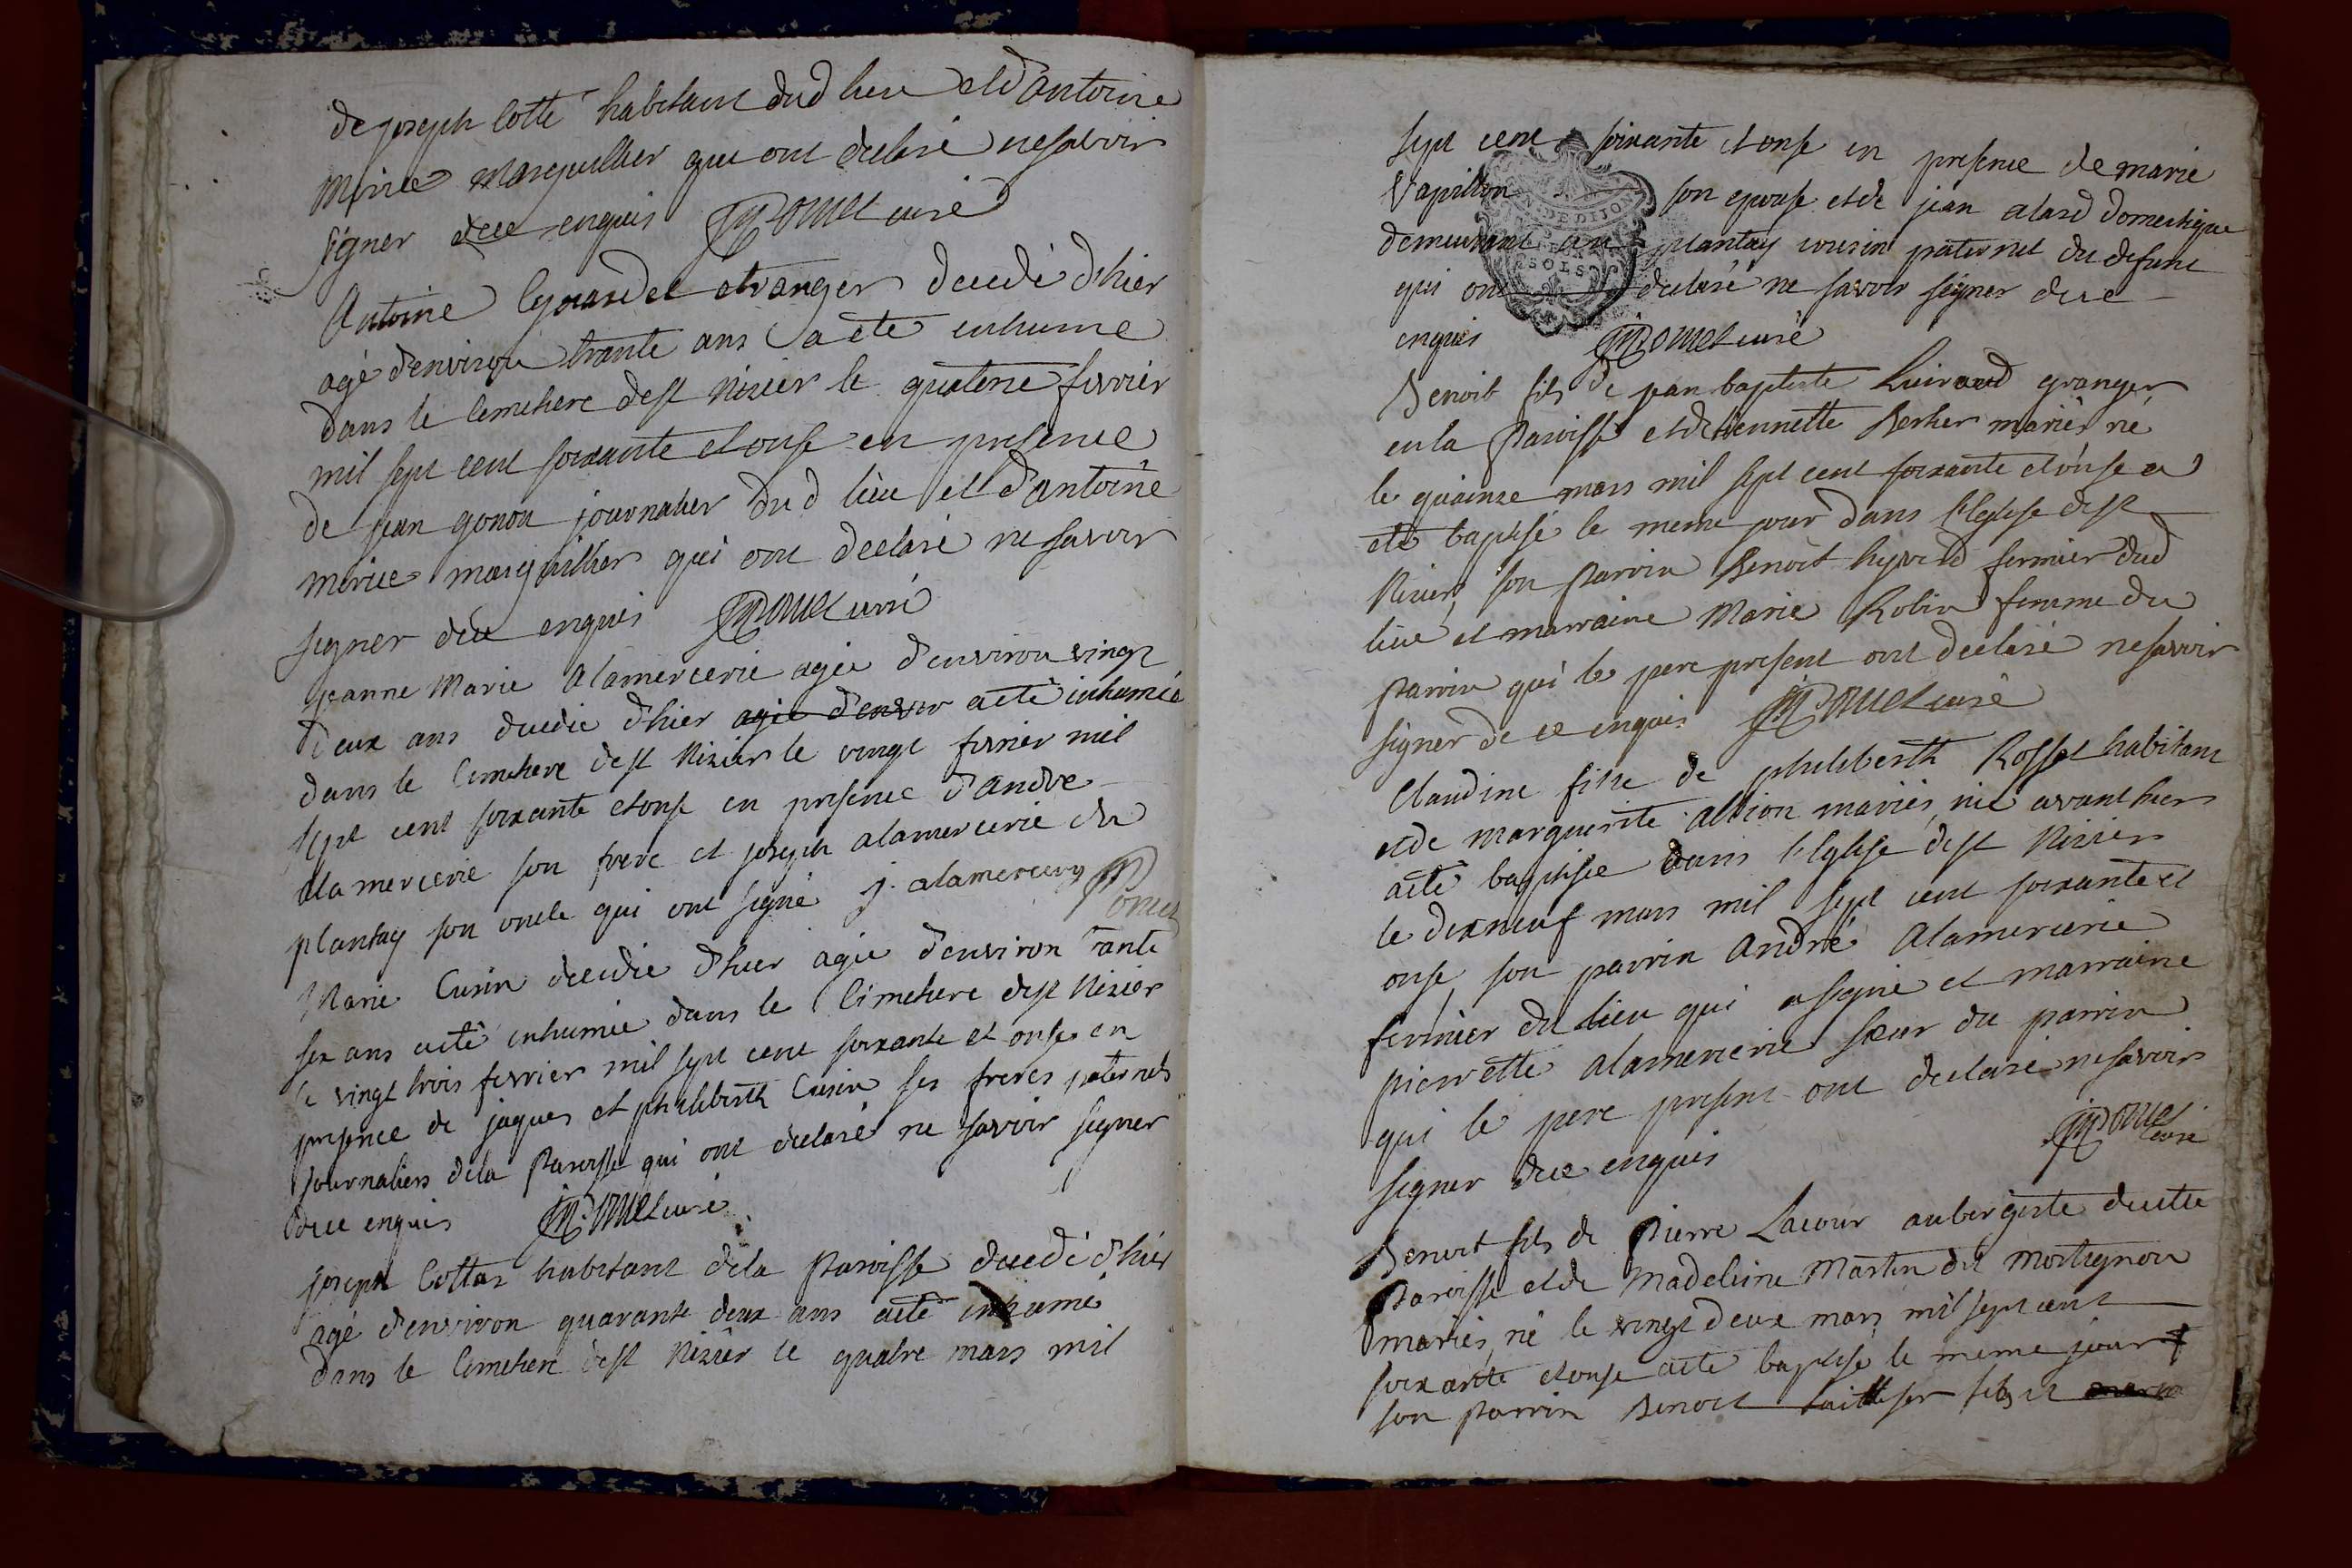 de joseph Cotte habitant dud lieu et d'antoine
Morice Marguillier qui ont declaré ne savoir
signer dece enquis JM Pomet curé
Antoine etranger decedé d'hier
agé d'environ trante ans a été inhumé
dans le Cimetiere de st Nizier le quatorze fevrier
mil sept cent soixante et onse en presence
de jean gonon journalier dud lieu et d'antoine
morice marguillier qui ont declaré ne savoir
signer dece enquis JM Pomet curé
jeanne Marie Alamercerie agée d'environ vingt
deux ans decedée d'hier agée d'environ a eté inhumée
dans le Cimetiere de st Nizier le vingt fevrier mil
sept cent soixante et onse en presence d'andre
alamercerie son frere et joseph alamercerie du
plantay son oncle qui ont signé j. alamercery JM Pomet
Marie Cusin decedée d'hier agée d'environ trante
six ans a eté inhumée dans le Cimetiere de st Nizier
le vingt trois fevrier mil sept cent soixante et onse en
presence de jaques et philiberth Cusin ses freres paternels
journaliers de la Paroisse qui ont declaré ne savoir signer
dece enquis JM Pomet curé
joseph Cottas habitant de la Paroisse decedé d'hier
agé d'environ quarante deux ans a eté inhumé
dans le Cimetiere de st Nizier le quatre mars mil
sept cent soixante et onse en presence de marie
Vapillon son epouse et de jean alard domestique
demeurant au plantay cousin paternel du defunt
qui ont declaré ne savoir signer de ce
enquis JM Pomet curé
GEN. DE DIJON
SOLS
Benoit fils de jean baptiste granger
en la Paroisse et d'etiennette Berher mariés né
le quinze mars mil sept cent soixante et onse a
eté baptisé le meme jour dans l'Eglise de st
Nizier, son Parrin Benoit fermier dud
lieu et marraine Marie Robin femme du
Parrin qui le pere present ont declaré ne savoir
signer de ce enquis JM Pomet curé
Claudine fille de philiberth Rosset habitant
et de marguerite mariés, née avant hier
a eté baptisée dans l'Eglise de st Nizier
le dixneuf mars mil sept cent soixante et
onse, son parrin André Alamercerie
fermier du lieu qui a signé et marraine
pierrette alamercerie sœur du parrin
qui le pere present ont declaré ne savoir
signer dece enquis JM Pomet curé
Benoit fils de Pierre Lacour aubergiste de cette
Paroisse et de Madeleine Martin dit Mortignon
mariés, né le vingt deux mars mil sept cent
soixante et onse a eté baptisé le meme jour
son Parrin Benoit fils et